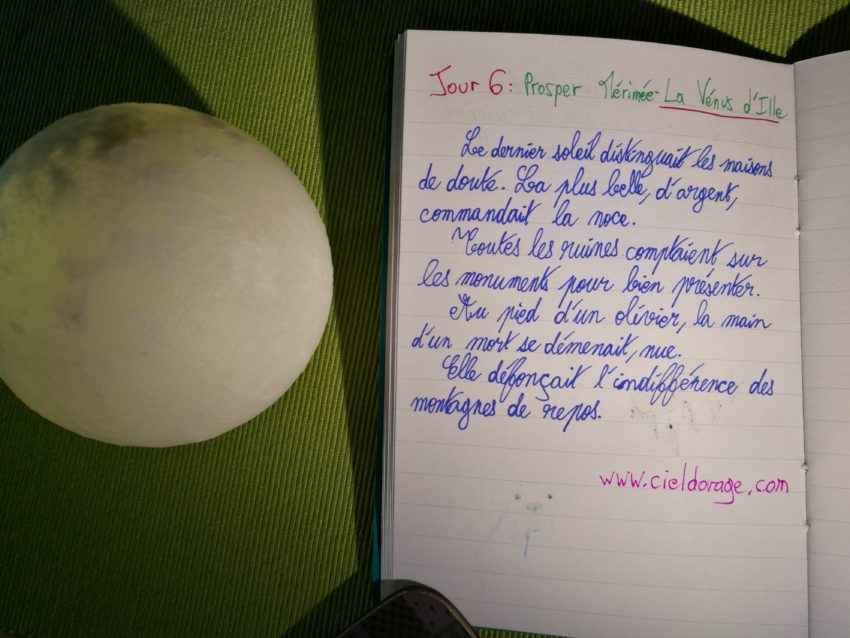 Jour 6: Prosper Mérimée - La Vénus d'Ille
Le dernier soleil distinguait les maisons
de doute. La plus belle, d'argent,
commandait la noce.
Toutes les ruines comptaient sur
les monuments pour bien présenter.
Au pied d'un olivier, la main
d'un mort se démenait, nue.
Elle défonçait l'indifférence des
montagnes de repos.
www.cieldorage.com